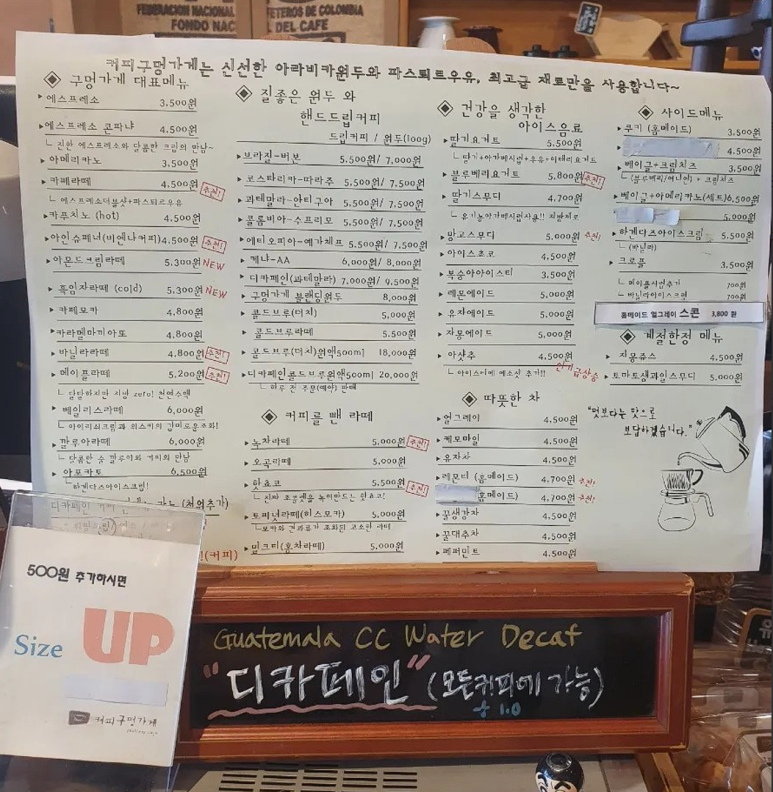 FEDERACION NACIONAL
FETEROS DE COLOMBIA
FONDO NAC
DEL CAFE
커피구멍가게는 신선한 아라비카원두와 파스퇴르우유, 최고급 재료만을 사용합니다~
구멍가게 대표메뉴
에스프레소 3.500원
에스프레소 콘파냐 4.500원
진한 에스프레소와 달콤한 크림의 만남~
아메리카노 3.500원
카페라떼 4.500원 추천!
에스프레소더블샷+파스퇴르우유
카푸치노 (hot) 4.500원
아인슈페너(비엔나커피) 4.500원 추천!
아몬드크림라떼 5.300원 NEW
흑임자라떼 (cold) 5.300원 NEW
카페모카 4.800원
카라멜마끼아또 4.800원
바닐라라떼 4.800원 추천!
메이플라떼 5.200원 추천!
베일리스라떼 6,000원
깔루아라떼 6,000원
아포카토 6,500원
하겐다즈아이스크림!
질좋은 원두 와
핸드드립커피
드립커피 / 원두(100g)
브라질-버본 5.500원/ 7,000원
코스타리카-따라주 5.500원/ 7.500원
과테말라-안티구아 5.500원/ 7.500원
콜롬비아-수프리모 5.500원/ 7.500원
에티오피아-예가체프 5.500원/ 7.500원
케냐-AA 6,000원/ 8,000원
디카페인(과테말라) 7.000원/ 9,500원
구멍가게 블랜딩원두 8,000원
콜드브루(더치) 5.000원
콜드브루라떼 5.500원
콜드브루(더치)원액500ml 18,000원
디카페인콜드브루원액500ml 20,000원
하루 전 주문(예약) 판매
커피를 뺀 라떼
녹차라떼 5,000원 추천!
오곡라떼 5.000원
핫쵸코 5.500원 추천!
토피넛라떼(히스모카) 5,000원
밀크티(홍차라떼) 5,000원
건강을 생각한
아이스음료
딸기요거트 5.500원
블루베리요거트 5.800원 추천!
딸기스무디 4.700원
망고스무디 5.000원 추천!
아이스쵸코 4.500원
복숭아아이스티 3.500원
레몬에이드 5,000원
유자에이드 5.000원
자몽에이드 5.000원
아샷추 4.500원
아이스티에 에소샷 추가!! 인기급상승
따뜻한 차
얼그레이 4.500원
케모마일 4.500원
유자차 4.500원
레몬티 (홈메이드) 4.700원 추천!
홈메이드) 4.700원 추천!
꿀생강차 4.500원
꿀대추차 4.500원
페퍼민트 4.500원
사이드메뉴
쿠키 (홈메이드) 3.500원
4.500원
베이글+크림치즈 3.500원
(블루베리/어니언) + 크림치즈
베이글+아메리카노(세트) 6.500원
5.000원
하겐다즈아이스크림 5.500원
(바닐라)
크로플 3.500원
메이플시럽추가 700원
바닐라아이스크림
홈메이드 얼그레이 스콘 3,800 원
계절한정 메뉴
자몽쥬스 4.500원
토마토생과일스무디 5.000원
"멋보다는 맛으로
보답하겠습니다."
500원 추가하시면
Size UP
커피구멍가게
Guatemala CC Water Decaf
"디카페인" (모든커피에 가능)
+ 1.0